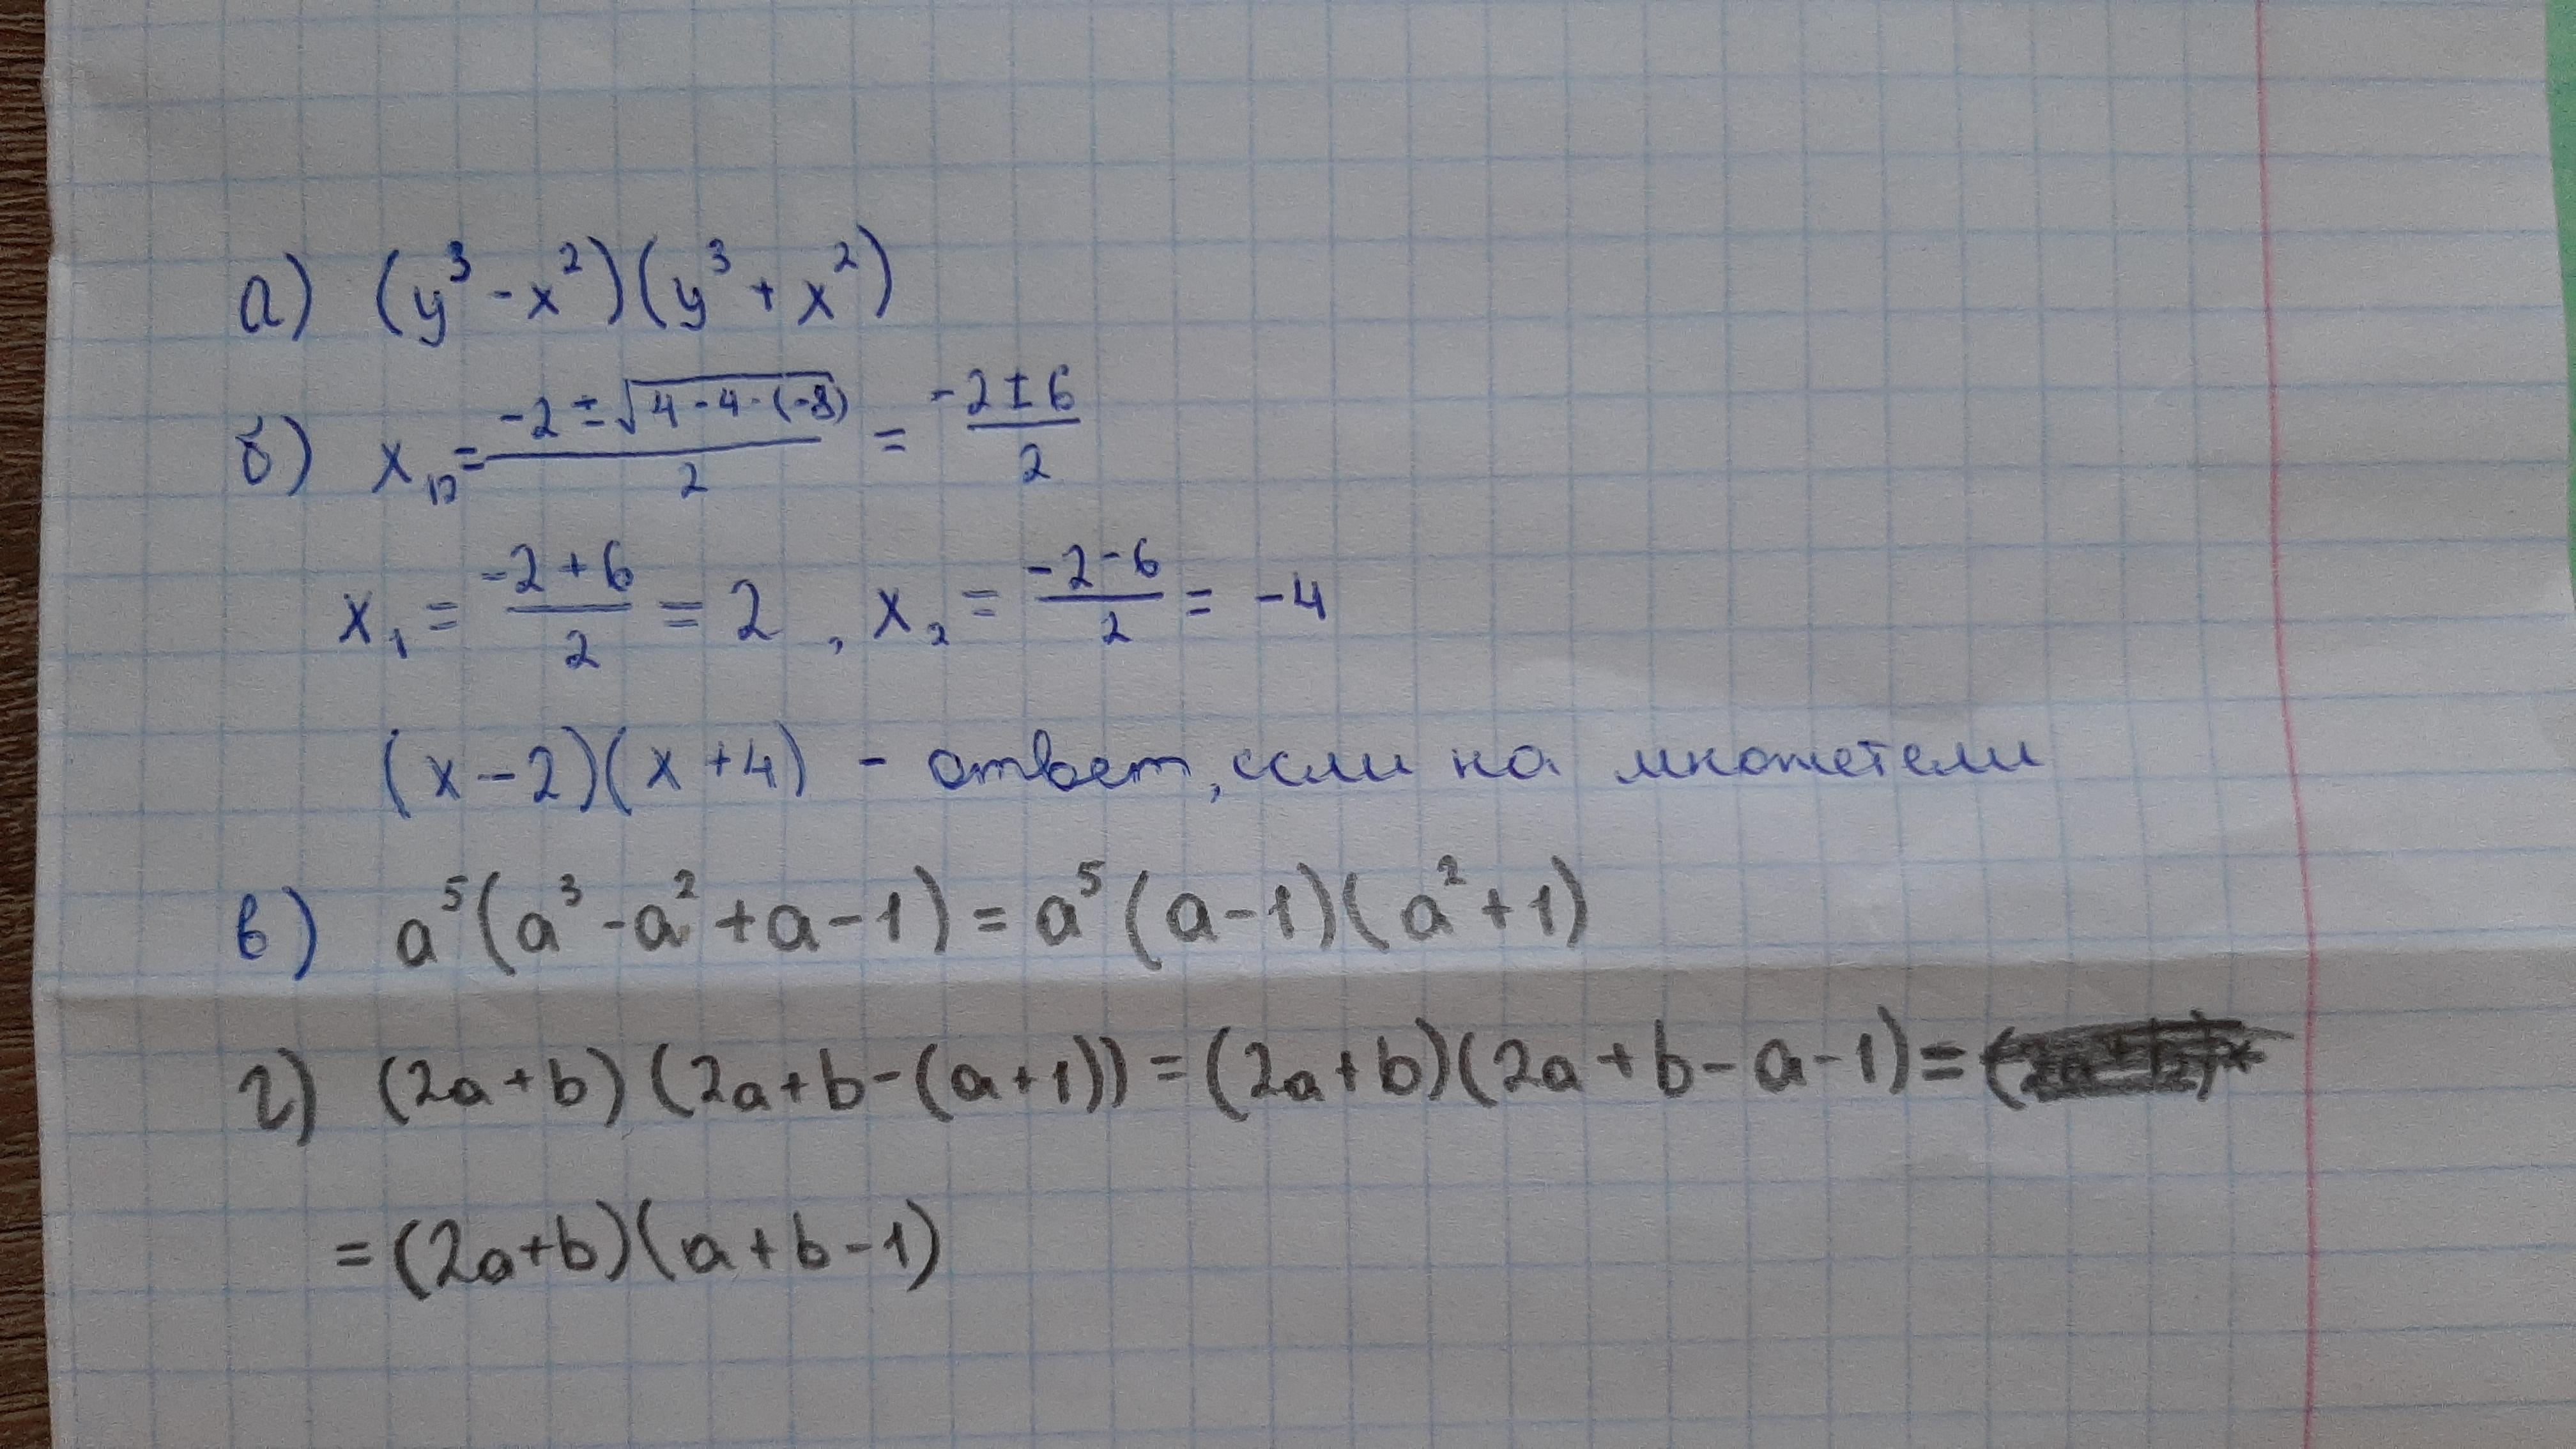 а) (y³ - x²)(y³ + x²)
б) x₁₂ = (-2 ± √(4 - 4 · (-8)))/2 = (-2 ± 6)/2
x₁ = (-2 + 6)/2 = 2 , x₂ = (-2 - 6)/2 = -4
(x - 2)(x + 4) - ответ, если на множетели
в) a⁵(a³ - a² + a - 1) = a⁵(a - 1)(a² + 1)
г) (2a + b)(2a + b - (a + 1)) = (2a + b)(2a + b - a - 1) =
= (2a + b)(a + b - 1)